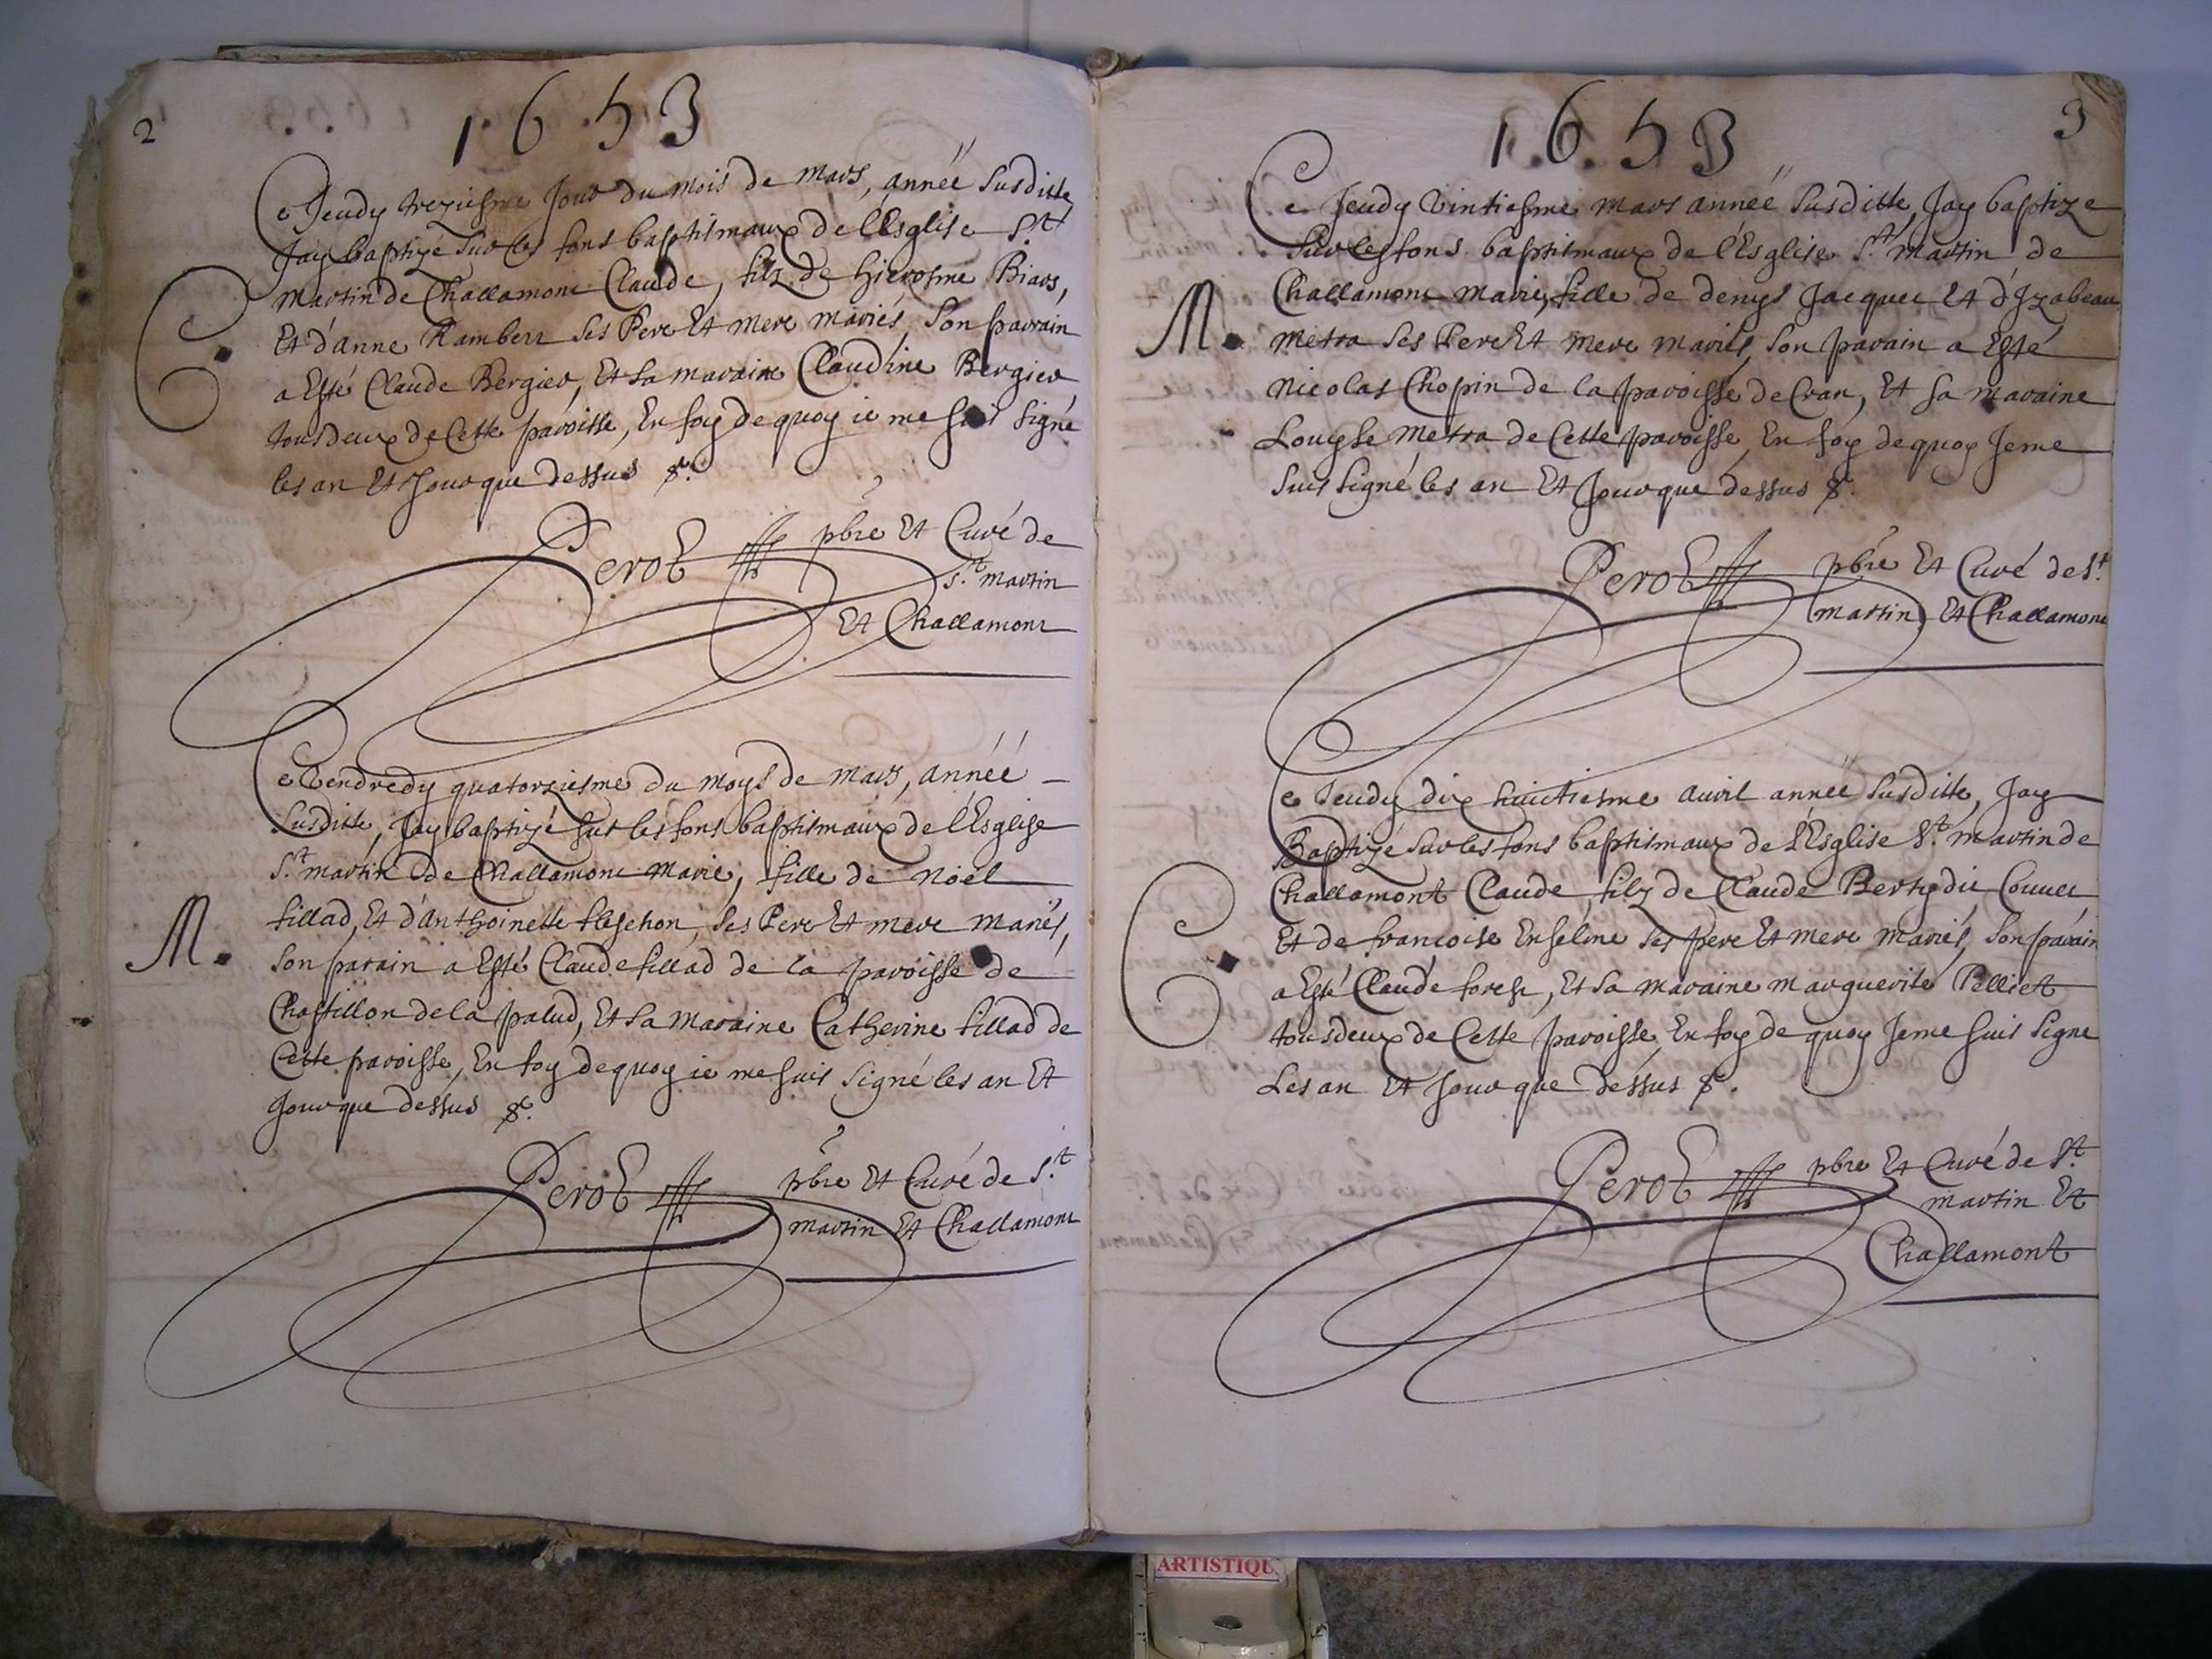 2
1653
Ce Jeudy treziesme Jour du mois de mars, année Susditte
Jay baptizé Sur les fons baptismaux de l'Esglise St
martin de Challamont Claude, filz de hierosme Biars,
Et d'anne Rambert Ses Pere Et mere mariés, Son parrain
C.
a Esté Claude Bergier, Et Sa maraine Claudine Bergier
tous deux de Cette paroisse, En foy de quoy ie me suis Signé
les an Et Jour que dessus &.
Perot pbre Et Curé de
St. martin
Et Challamont
Ce Vendredy quatorziesme du moys de mars, année
Susditte, Jay baptizé sur les fons baptismaux de l'Esglise
St. martin de Challamont Marie, fille de Noel
fillad, Et d'Anthoinette Ses Pere Et mere mariés,
M.
Son parain a Esté Claude fillad de la paroisse de
Chastillon de la palud, Et Sa maraine Catherine fillad de
Cette paroisse, En foy de quoy ie me suis Signé les an Et
Jour que dessus &.
Perot pbre Et Curé de St.
martin Et Challamont
3
1.6.53
Ce Jeudy Vintiesme mars année Susditte, Jay baptizé
Sur les fons baptismaux de l'Esglise St. martin de
Challamont Marie, fille de denys Jacquet Et d'Izabeau
M.
metra Ses Pere Et mere mariés, Son parain a Esté
Nicolas Chopin de la paroisse de Cran, Et Sa maraine
Louyse Metra de Cette paroisse, En foy de quoy Je me
Suis Signé les an Et Jour que dessus &.
Perot pbre Et Curé de St.
martin Et Challamont
Ce Jeudy dix huictiesme auril année Susditte, Jay
Baptizé Sur les fons baptismaux de l'Esglise St. martin de
Challamont Claude, filz de Claude Berty dit
Et de francoise Enseline Ses pere Et mere mariés, Son parain
C.
a Esté Claude forest, Et Sa maraine marguerite Pelliet
tous deux de Cette paroisse, En foy de quoy Je me suis Signé
Les an Et Jour que dessus &.
Perot pbre Et Curé de St.
martin Et
Challamont
ARTISTIQU